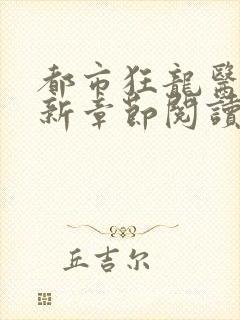 都市狂龍醫
新章節閱讀
丘吉尔